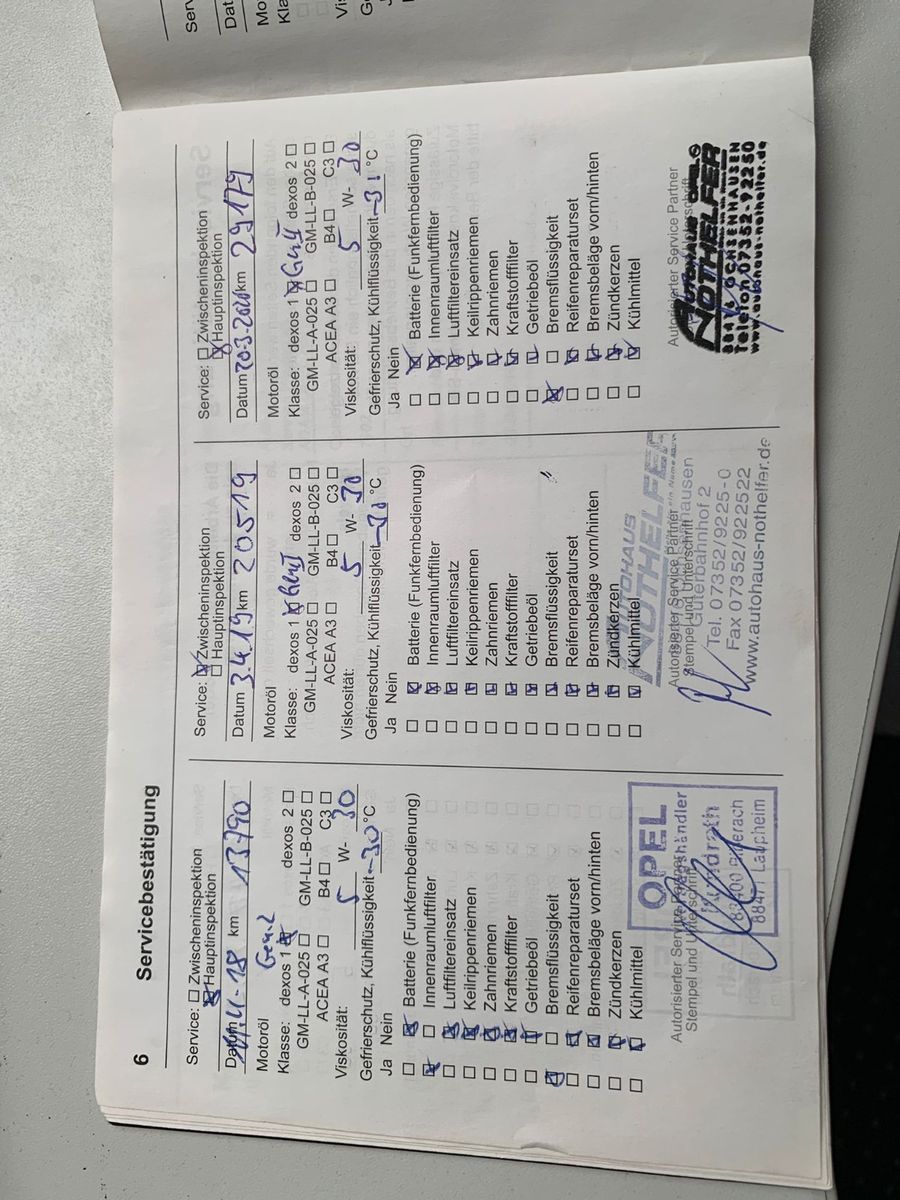 6 Servicebestätigung
Service: Zwischeninspektion
Hauptinspektion
Datum km 13790
Motoröl
Klasse: dexos 1 dexos 2
GM-LL-A-025 GM-LL-B-025
ACEA A3 B4 C3
Viskosität: 5 W- 30
Gefrierschutz, Kühlflüssigkeit -30 °C
Ja Nein
Batterie (Funkfernbedienung)
Innenraumluftfilter
Luftfiltereinsatz
Keilrippenriemen
Zahnriemen
Kraftstofffilter
Getriebeöl
Bremsflüssigkeit
Reifenreparaturset
Bremsbeläge vorn/hinten
Zündkerzen
Kühlmittel
Autorisierter Service Partner
Stempel und Unterschrift
OPEL
88471 Laupheim
Service: Zwischeninspektion
Hauptinspektion
Datum 3.4.19 km 20519
Motoröl
Klasse: dexos 1 Gen II dexos 2
GM-LL-A-025 GM-LL-B-025
ACEA A3 B4 C3
Viskosität: 5 W- 30
Gefrierschutz, Kühlflüssigkeit -30 °C
Ja Nein
Batterie (Funkfernbedienung)
Innenraumluftfilter
Luftfiltereinsatz
Keilrippenriemen
Zahnriemen
Kraftstofffilter
Getriebeöl
Bremsflüssigkeit
Reifenreparaturset
Bremsbeläge vorn/hinten
Zündkerzen
Kühlmittel
Autorisierter Service Partner
Stempel und Unterschrift
AUTOHAUS
NOTHELFER
Güterbahnhof 2
Tel. 07352/9225-0
Fax 07352/922522
www.autohaus-nothelfer.de
Service: Zwischeninspektion
Hauptinspektion
Datum 20.3.2020 km 29179
Motoröl
Klasse: dexos 1 Gen II dexos 2
GM-LL-A-025 GM-LL-B-025
ACEA A3 B4 C3
Viskosität: 5 W- 30
Gefrierschutz, Kühlflüssigkeit -31 °C
Ja Nein
Batterie (Funkfernbedienung)
Innenraumluftfilter
Luftfiltereinsatz
Keilrippenriemen
Zahnriemen
Kraftstofffilter
Getriebeöl
Bremsflüssigkeit
Reifenreparaturset
Bremsbeläge vorn/hinten
Zündkerzen
Kühlmittel
Autorisierter Service Partner
AUTOHAUS
NOTHELFER
88416 OCHSENHAUSEN
Telefon 07352-92250
www.autohaus-nothelfer.de